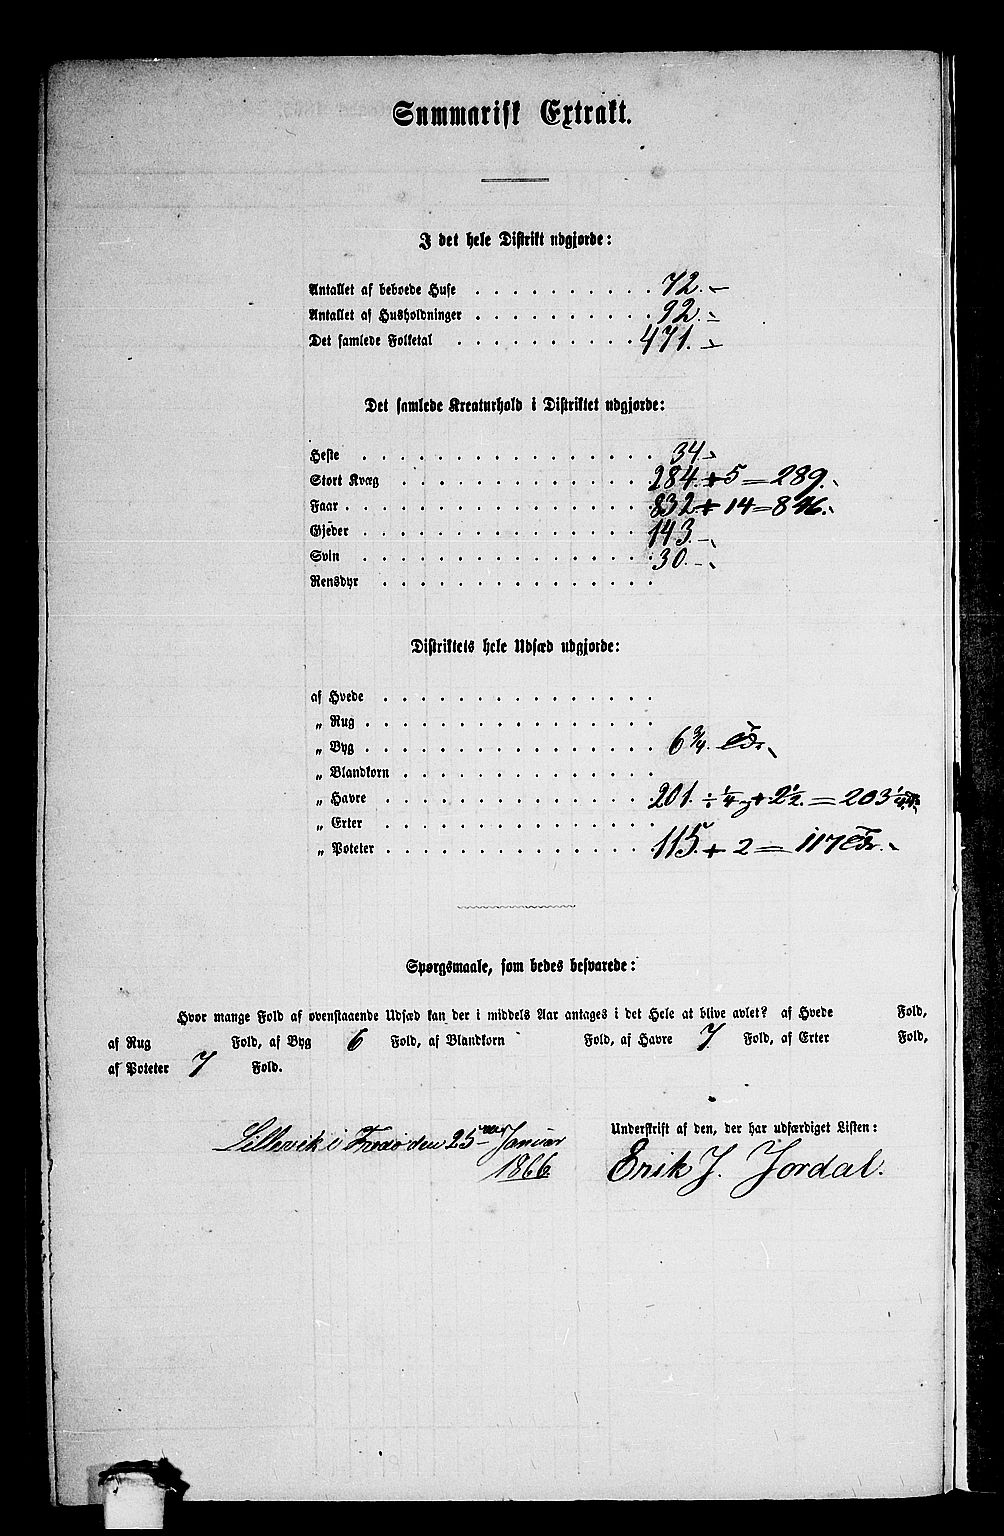 Summarisk Extrakt.
I det hele Distrikt udgjorde:
Antallet af beboede Huse . . . . . . . . . . 72.
Antallet af Husholdninger . . . . . . . . . . 92.
Det samlede Folketal . . . . . . . . . . 471.
Det samlede Kreaturhold i Distriktet udgjorde:
Heste . . . . . . . . . . 34.
Stort Kvæg . . . . . . . . . . 284. + 5 = 289.
Faar . . . . . . . . . . 832. + 14 = 846.
Gjeder . . . . . . . . . . 143.
Svin . . . . . . . . . . 30.
Rensdyr . . . . . . . . . .
Distriktets hele Udsæd udgjorde:
af Hvede . . . . . . . . . .
„ Rug . . . . . . . . . .
„ Byg . . . . . . . . . . 6 3/4. Tdr.
„ Blandkorn . . . . . . . . . .
„ Havre . . . . . . . . . . 201. ÷ 1/4 + 2 1/2. = 203 1/4
„ Erter . . . . . . . . . .
„ Poteter . . . . . . . . . . 115. + 2 = 117 Tdr.
Spørgsmaale, som bedes besvarede:
Hvor mange Fold af ovenstaaende Udsæd kan der i middels Aar antages i det Hele at blive avlet? af Hvede Fold,
af Rug Fold, af Byg 6 Fold, af Blandkorn Fold, af Havre 7. Fold, af Erter Fold,
af Poteter 7 Fold.
Underskrift af den, der har udfærdiget Listen:
Lillevik i Fredø den 25 Januar
1866
Erik J. Jordal.